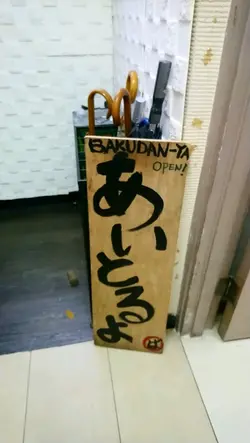 BAKUDAN-YA
OPEN!
あいとるよ
ば